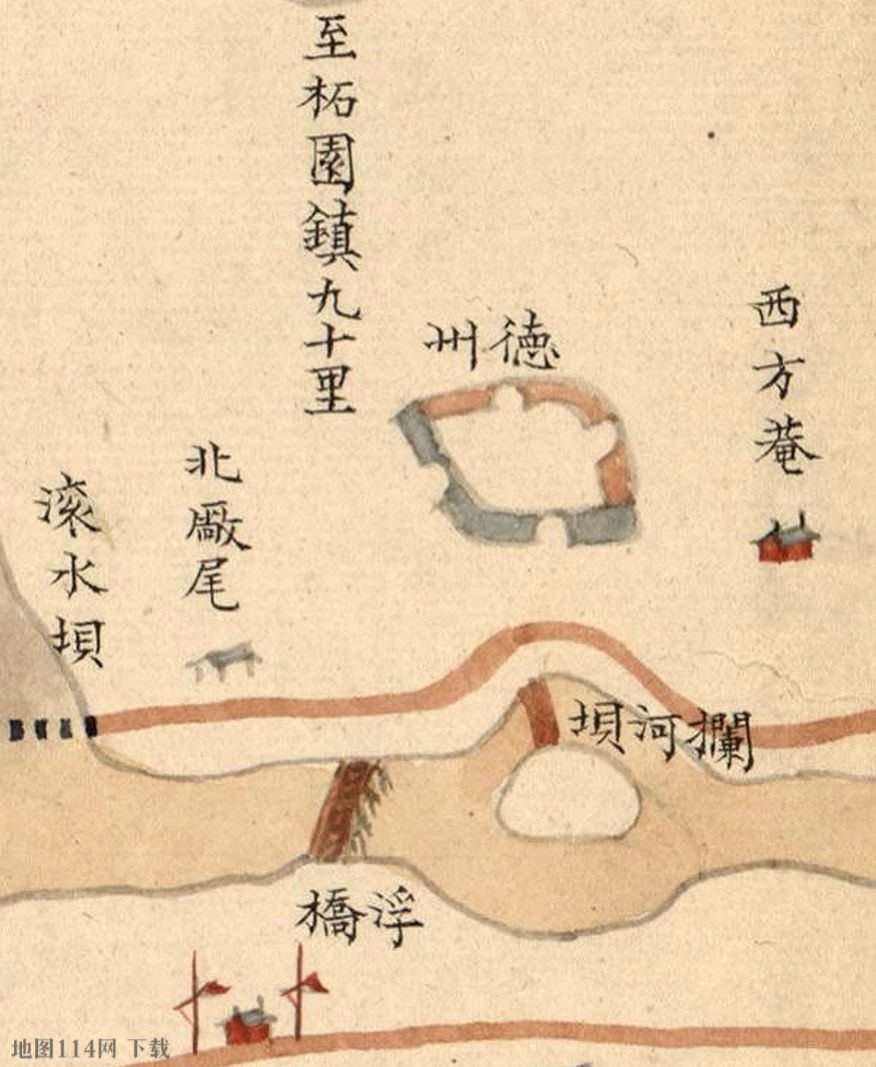 至柘園鎮九十里
德州
西方菴
北厰尾
滚水垻
攔河垻
浮橋
地图114网 下载